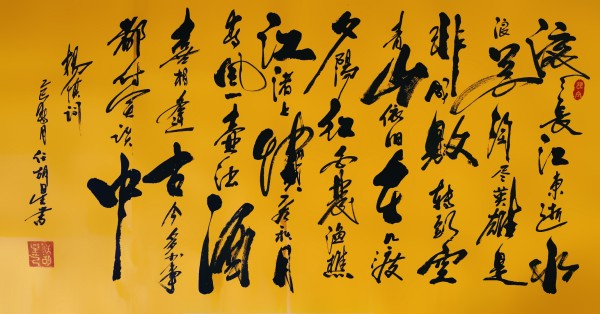 滚〻長江東逝水
浪花淘尽英雄是
非成敗转头空
青山依旧在几度
夕陽红白发渔樵
江渚上惯看秋月
春風一壶浊酒
喜相逢古今多少事
都付笑谈中
杨慎词
月 书